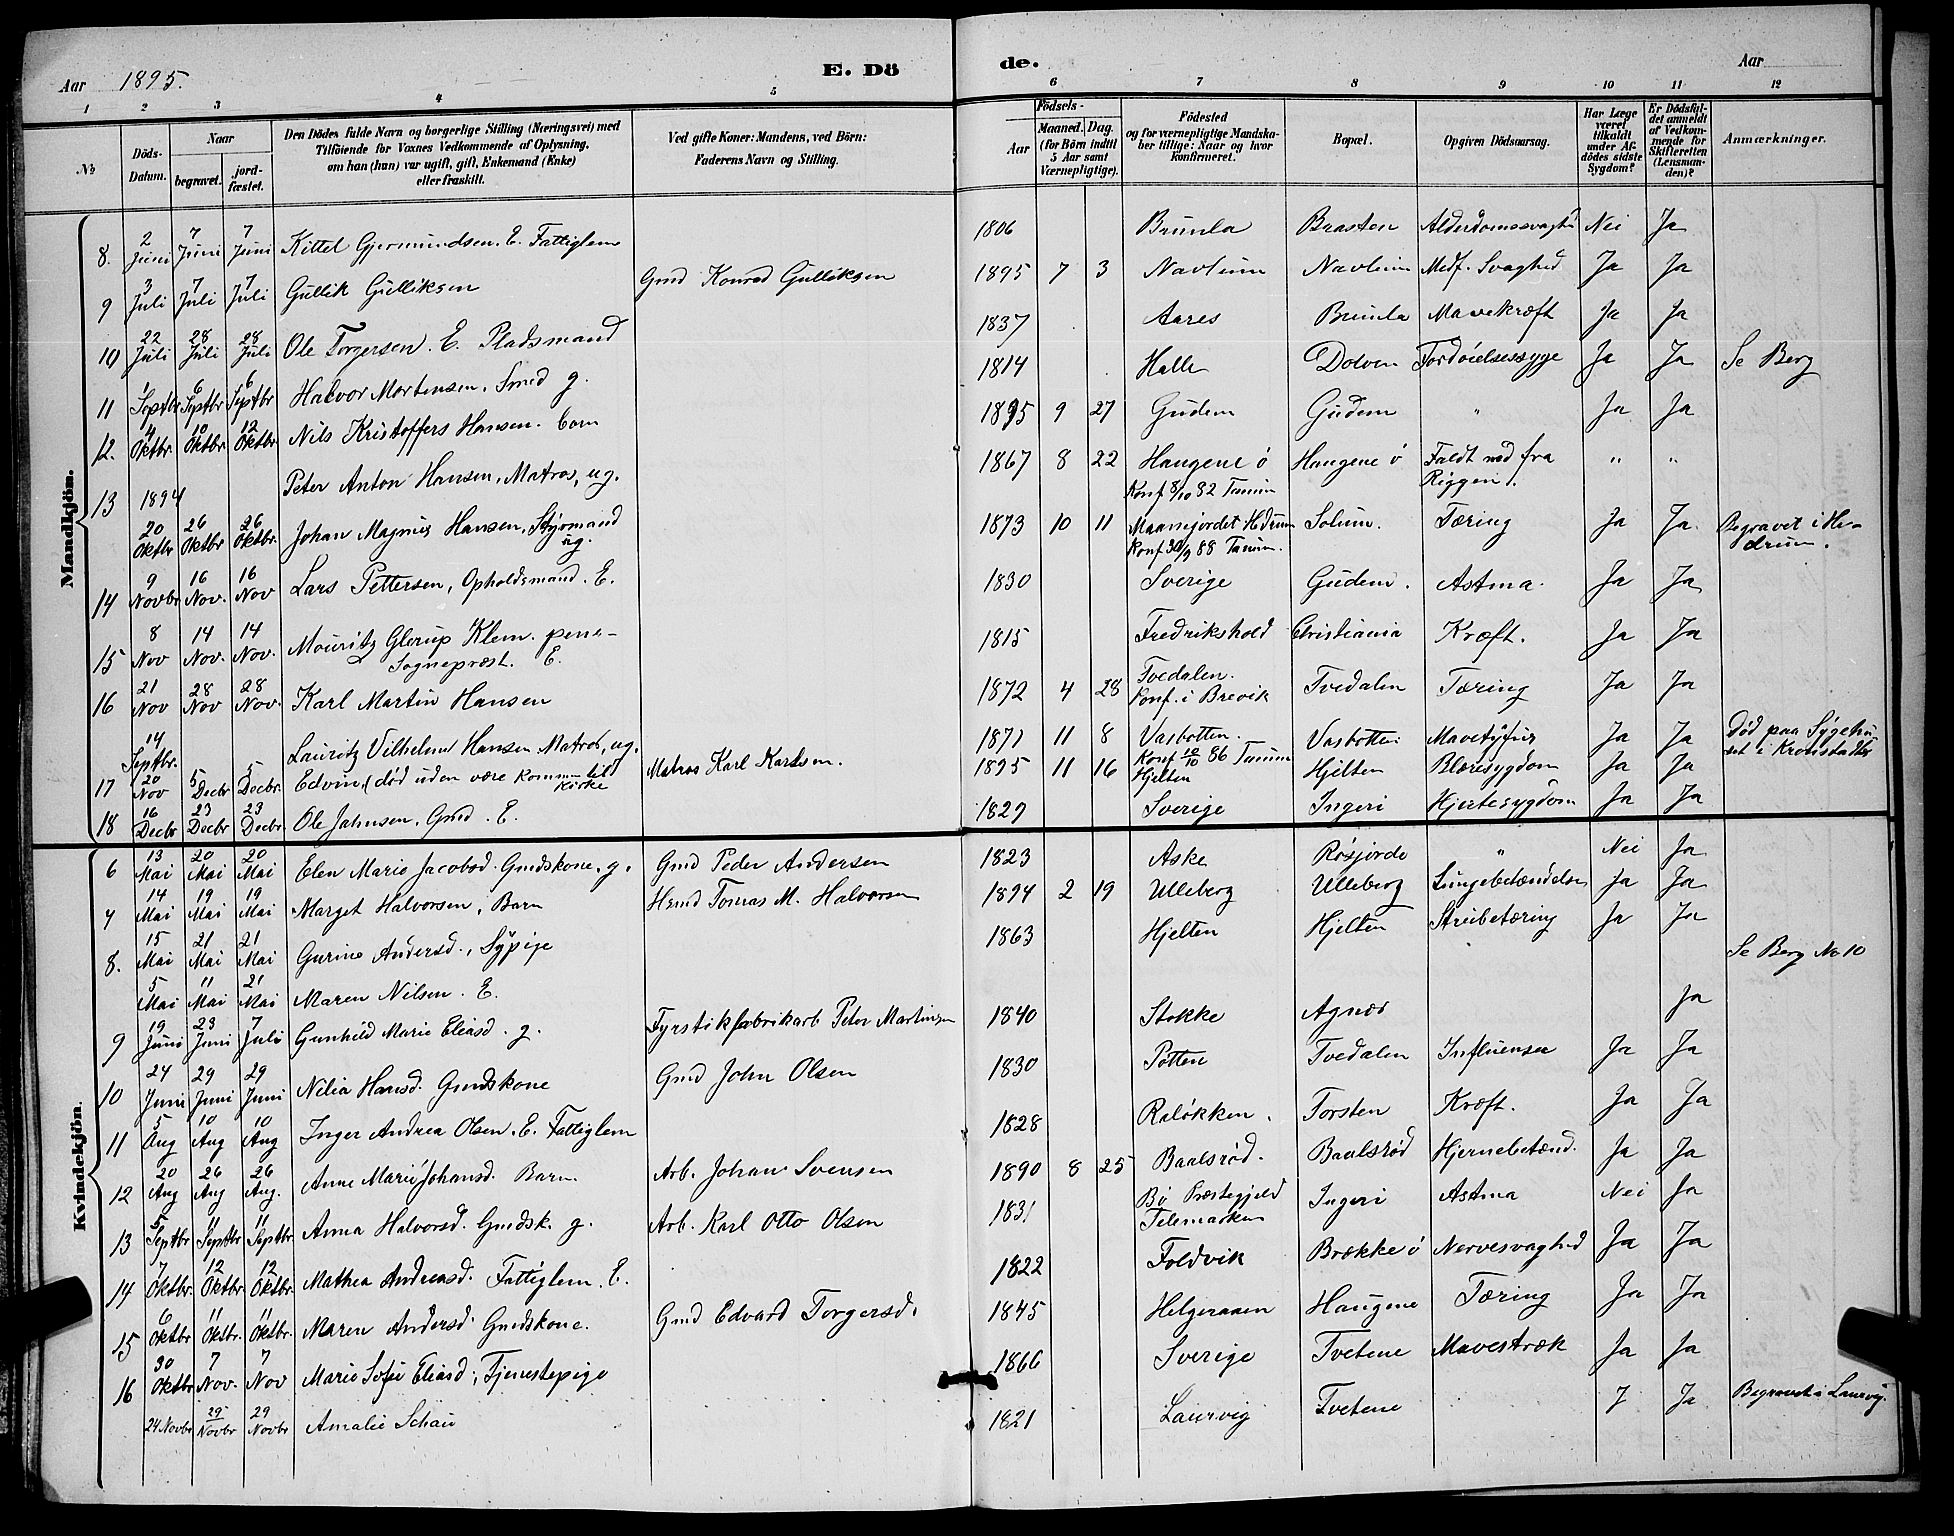 Aar 1895. E. Dö de. Aar
1 2 3 4 5 6 7 8 9 10 11 12
№ Döds-Datum. Naar begravet. jordfæstet. Den Dödes fulde Navn og borgerlige Stilling (Næringsvei) med Tilföiende for Voxnes Vedkommende af Oplysning, om han (hun) var ugift, gift, Enkemand (Enke) eller fraskilt. Ved gifte Koner: Mandens, ved Börn: Faderens Navn og Stilling. Födsels- Aar Maaned. Dag. (for Börn indtil 5 Aar samt Værnepligtige). Födested og for værnepligtige Mandskaber tillige: Naar og hvor konfirmeret. Bopæl. Opgiven Dödsaarsag. Har Læge været tilkaldt under Afdödes sidste Sygdom? Er Dödsfaldet anmeldt af Vedkommende for Skifteretten (Lensmanden)? Anmærkninger.
Mandkjön.
8. 2 Juni 7 Juni 7 Juni Kittel Gjermundsen. E. Fattiglem 1806 Brunla Brasten Alderdomssvaghd Nei Ja
9 3 Juli 7 Juli 7 Juli Gullik Gulliksen Gmd Konrad Gulliksen 1895 7 3 Navlum Navlum Medf. Svaghed Ja Ja
10 22 Juli 28 Juli 28 Juli Ole Torgersen. E. Pladsmand 1837 Aares Brunla Mavekræft Ja Ja
11 1 Septbr 6 Septbr 6 Septbr Halvor Mortensen, Smed g. 1814 Halle Dolven Fordöielsessyge Ja Ja Se Berg
12. 4 Oktbr. 10 Oktbr 12 Oktbr Nils Kristoffers Hansen. barn 1895 9 27 Gudem Gudem " Ja Ja
13 1894 Peter Anton Hansen, Matros, ug. 1867 8 22 Haugene ö Konf 8/10 82 Tanum Haugene ö Faldt ned fra Riggen. " "
20 Oktbr 26 Oktbr 26 Oktbr. Johan Magnus Hansen, Styrmand ug. 1873 10 11 Maanejordet Hedrum Konf 30/9 88 Tanum. Solum. Tæring Ja Ja. Begravet i Hedrum.
14 9 Novbr 16 Nov. 16 Nov Lars Pettersen, Opholdsmand. E. 1830 Sverige Gudem. Astma. Ja Ja
15 8 Nov 14 Nov. 14 Nov. Mouritz Glerup Klem. pens- Sogneprest. E. 1815 Fredrikshold Christiania Kræft. Ja Ja
16 21 Nov 28 Nov 28 Nov. Karl Martin Hansen 1872 4 28 Tvedalen. Konf. i Brevik Tvedalen Tæring Ja Ja
14 Septbr. Lauritz Vilhelm Hansen Matros, ug. 1871 11 8 Vasbotten. Konf 10/10 86 Tanum Vasbotten Mavetyfus Ja Ja Död paa Sygehuset i Kronstadt
17 20 Nov 5 Decbr 5 Decbr. Edvin (död uden være kommen til Kirke Matros Karl Karlsen. 1895 11 16 Hjelten Hjelten Blæresygdom Ja Ja
18 16 Decbr 23 Decbr 23 Decbr. Ole Johnsen, Gmd. E. 1829 Sverige Ingeri Hjertesygdom Ja Ja
Kvindekjön.
6 13 Mai 20 Mai 20 Mai Elen Marie Jacobsd. Gmdskone. g. Gmd Peder Andersen 1823 Aske Røsjorde " Nei Ja
7 14 Mai 19 Mai 19 Mai Marget Halvorsen, Barn Hsmd Tomas M. Halvorsen 1894 2 19 Ulleberg Ulleberg Lungebetændelse Ja Ja
8. 15 Mai 21 Mai 21 Mai Gurine Andersd., Sypige 1863 Hjelten Hjelten Strubetæring Ja Ja
5 Mai 11 Mai 21 Mai Maren Nilsen. E. Se Berg No 10
9 19 Juni 23 Juni 7 Juli Gunhild Marie Eliasd. g. Fyrstikfabrikarb Peter Martinsen 1840 Stokke Agnes Ja
10 24 Juni 29 Juni 29 Juni Nilia Hansd. Gmdskone Gmd John Olsen 1830 Potten Tvedalen Influensa Ja Ja
11 5 Aug 10 Aug 10 Aug Inger Andrea Olsen. E. Fattiglem 1828 Raløkken. Torsten Kræft. Ja Ja
12 20 Aug 26 Aug 26 Aug. Anne Marie Johansd. Barn. Arb. Johan Svensen 1890 8 25 Baalsrød. Baalsrød Hjernebetænd. Ja Ja
13 5 Septbr 11 Septbr 11 Septbr Anna Halvorsd. Gmdsk. g. Arb. Karl Otto Olsen 1831 Bö Præstegjeld Telemarken Ingeri Astma Nei Ja
14 7 Oktbr. 12 Oktbr. 12 Oktbr. Mathea Andreasd. Fattiglem. E. 1822 Foldvik Brække ö Nervesvaghed Ja Ja
15 6 Oktbr 11 Oktbr. 11 Oktbr. Maren Andersd. Gmdskone. Gmd Edvard Torgersd. 1845 Helgeraaen Haugene Tæring Ja Ja
16 30 Oktbr 7 Nov. 7 Nov Marie Sofie Eliasd., Tjenestepige 1866 Sverige Tvetene Mavestræk Ja Ja
24 Novbr 29 Novbr 29 Novbr Amalie Schau 1821 Laurvig Tvetene J Ja Begravet i Laurvig.